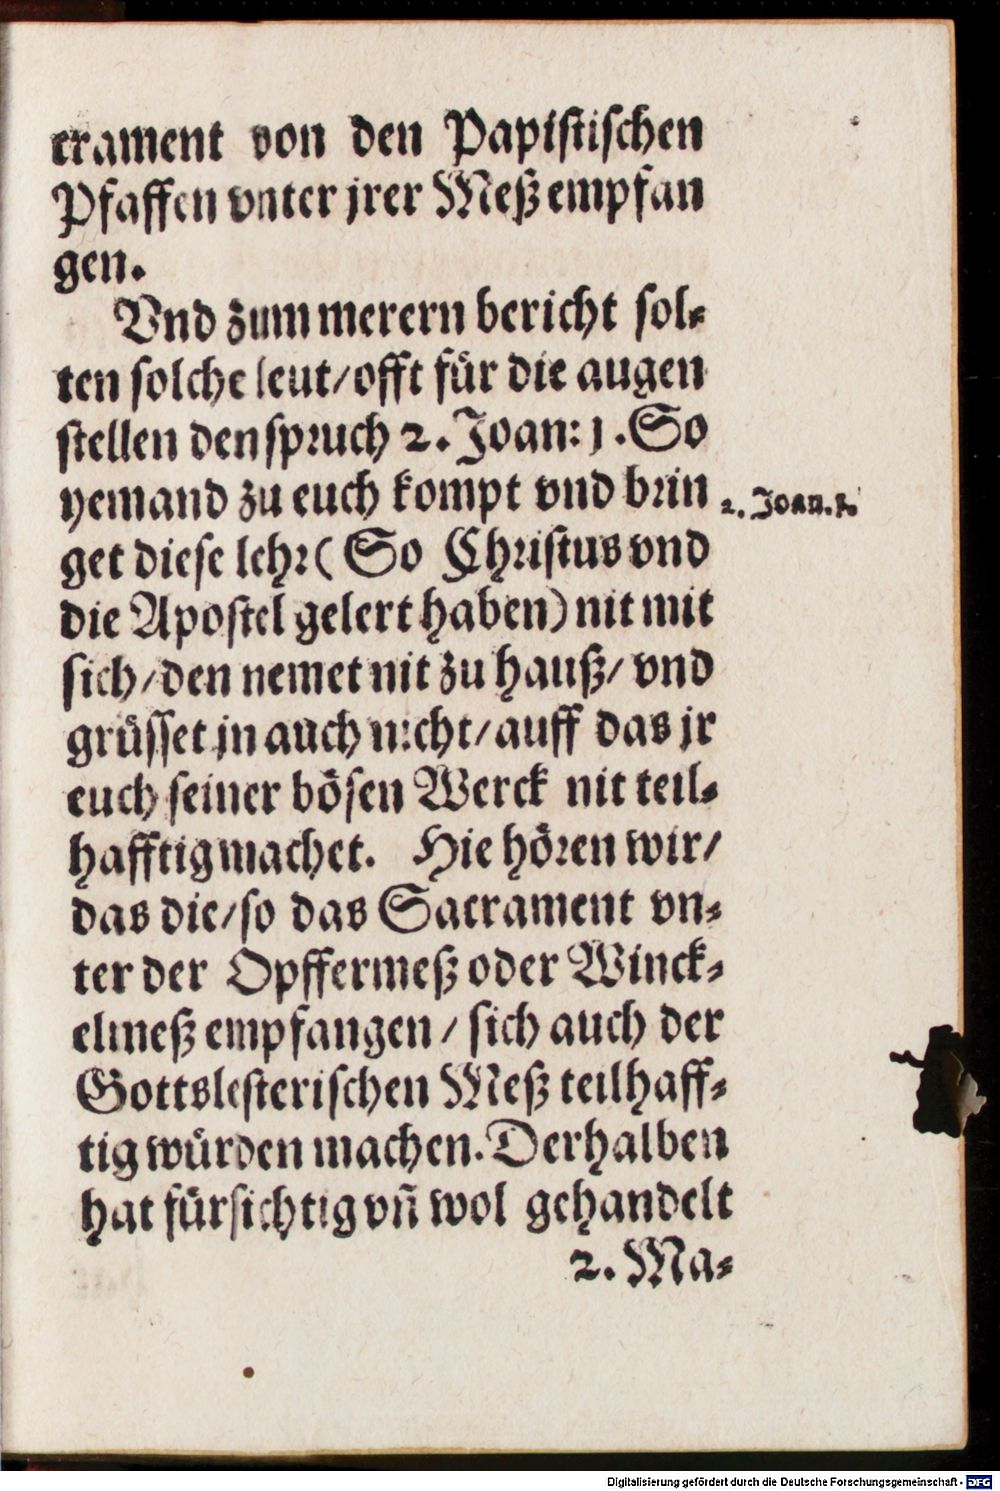 crament von den Papistischen
Pfaffen vnter jrer Meß empfan
gen.
Vnd zum merern bericht sol-
ten solche leut/offt für die augen
stellen den spruch 2. Joan: 1. So
yemand zu euch kompt vnd brin
2. Joan. 1.
get diese lehr( So Christus vnd
die Apostel gelert haben) nit mit
sich/den nemet nit zu hauß/ vnd
grüsset jn auch nicht/auff das jr
euch seiner bösen Werck nit teil-
hafftig machet. Hie hören wir/
das die/so das Sacrament vn-
ter der Opffermeß oder Winck-
elmeß empfangen / sich auch der
Gottslesterischen Meß teilhaff-
tig würden machen. Derhalben
hat fürsichtig vñ wol gehandelt
2. Ma-
Digitalisierung gefördert durch die Deutsche Forschungsgemeinschaft - DFG